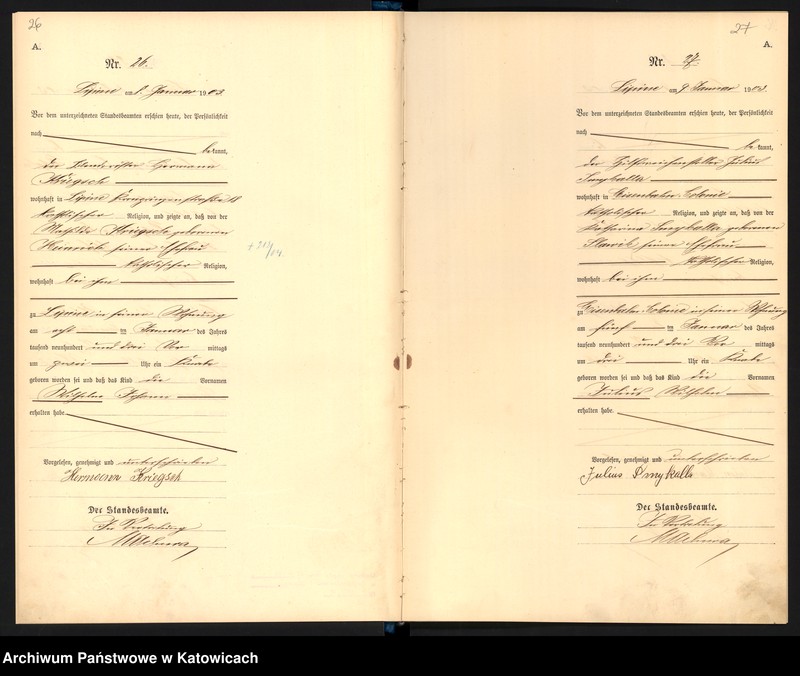 26
A.
Nr. 26.
Lipine am 8. Januar 1903
Vor dem unterzeichneten Standesbeamten erschien heute, der Persönlichkeit
nach
be kannt,
der Hermann
Kriegsch
wohnhaft in Lipine
katholischer Religion, und zeigte an, daß von der
Mathilde Kriegsch geborenen
Heinrich seiner Ehefrau
katholischer Religion,
wohnhaft bei ihm
zu Lipine in seiner Wohnung
am acht ten Januar des Jahres
tausend neunhundert und drei Vor mittags
um zwei Uhr ein Knabe
geboren worden sei und daß das Kind die Vornamen
Wilhelm
erhalten habe.
Vorgelesen, genehmigt und unterschrieben
Hermann Kriegsch
Der Standesbeamte.
In Vertretung
+ 21/2/04.
27
A.
Nr. 27.
Lipine am 9 Januar 1903.
Vor dem unterzeichneten Standesbeamten erschien heute, der Persönlichkeit
nach
be kannt,
der Julius
Smykalla
wohnhaft in Eisenbahn Colonie
katholischer Religion, und zeigte an, daß von der
Katharina Smykalla geborenen
Slawik seiner Ehefrau
katholischer Religion,
wohnhaft bei ihm
zu Eisenbahn Colonie in seiner Wohnung
am fünf ten Januar des Jahres
tausend neunhundert und drei Vor mittags
um drei Uhr ein Knabe
geboren worden sei und daß das Kind die Vornamen
Julius Wilhelm
erhalten habe.
Vorgelesen, genehmigt und unterschrieben
Julius Smykalla
Der Standesbeamte.
In Vertretung
Archiwum Państwowe w Katowicach